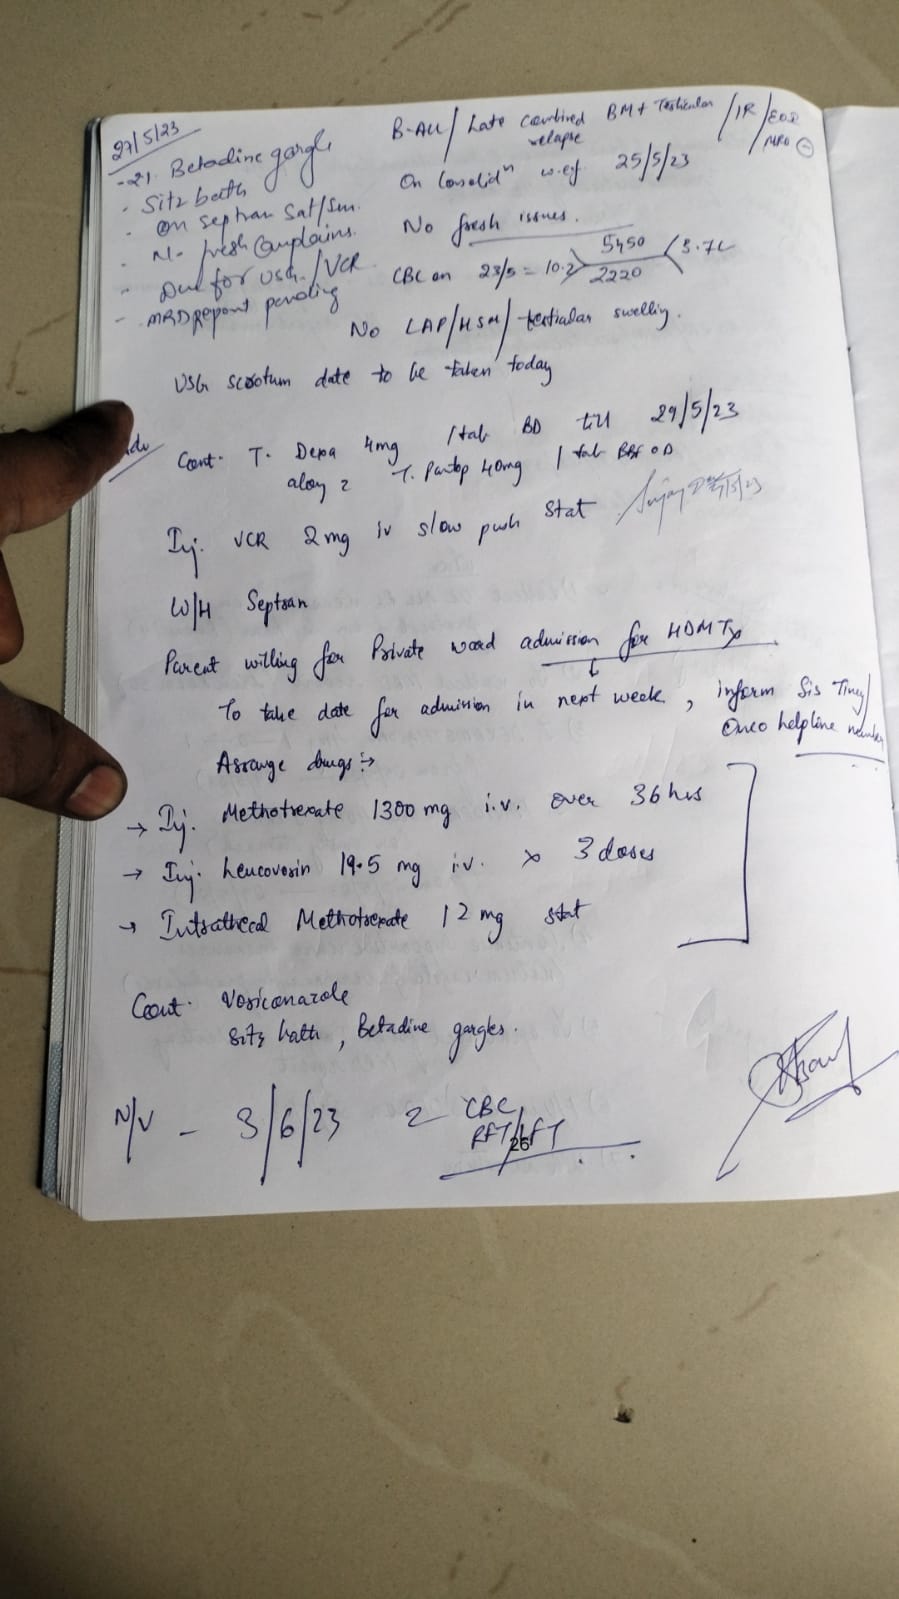 27/5/23
- 21. Betadine gargle
· Sitz bath
· On septran Sat/Sun.
· No fresh Complains.
- Due for USG./VCR
- MRD report pending
B-ALL/ Late combined relapse BM + Testicular /IR/EOI MRD ⊖
On Consolidⁿ w.e.f 25/5/23
No fresh issues.
CBC on 23/5 = 10.2 5450 2220 3.7L
No LAP/HSM/testicular swelling.
USG scrotum date to be taken today
Adv
Cont. T. Dexa 4mg 1 tab BD till 29/5/23
along c T. Pantop 40mg 1 tab BBF OD
Inj. VCR 2mg iv slow push Stat
W/H Septran
Parent willing for Private ward admission for HDMTx
↓
To take date for admission in next week, inform Sis Tincy/
Onco helpline number
Arrange drugs :→
→ Inj. Methotrexate 1300 mg i.v. over 36 hrs
→ Inj. Leucovorin 19.5 mg i.v. x 3 doses
→ Intrathecal Methotrexate 12 mg stat
Cont. Voriconazole
Sitz bath, Betadine gargles.
N/V - 3/6/23 c CBC
RFT/LFT
26